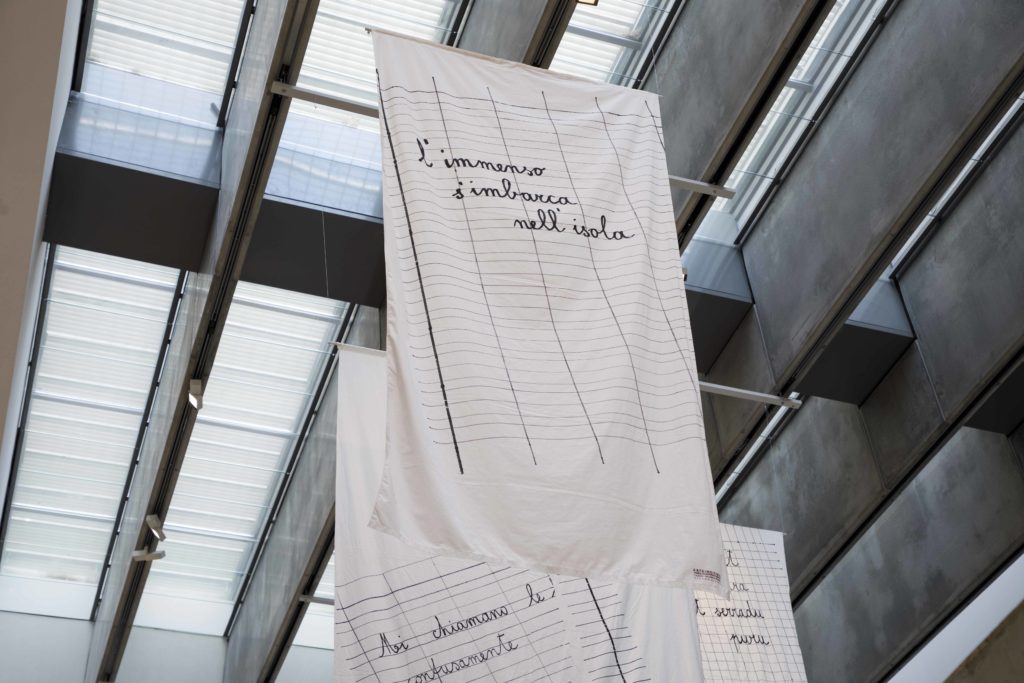 l'immenso
s'imbarca
nell'isola
Mi chiamano le
confusamente
serradu
puru